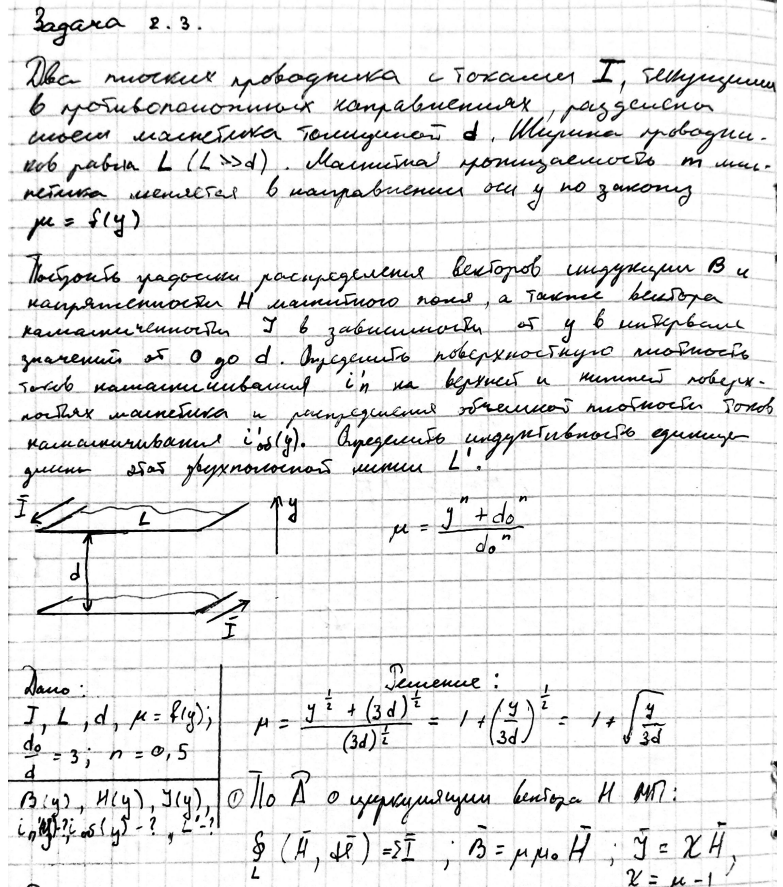 Задача 2.3.
Два плоских проводника с токами I, текущими
в противоположных направлениях, разделены
слоем магнетика толщиной d. Ширина проводни-
ков равна L (L>>d). Магнитная проницаемость m маг-
нетика меняется в направлении оси y по закону
μ = f(y)
Построить графики распределения векторов индукции B и
напряженности H магнитного поля, а также вектора
намагниченности J в зависимости от y в интервале
значений от 0 до d. Определить поверхностную плотность
токов намагничивания i'п на верхней и нижней поверх-
ностях магнетика и распределения объемной плотности токов
намагничивания i'об(y). Определить индуктивность единицы
длины этой двухполосной линии L'.
I̅ L y
μ = (yⁿ + d₀ⁿ)/d₀ⁿ
d
I̅
Дано:
I, L, d, μ = f(y);
d₀/d = 3; n = 0,5
B(y), H(y), J(y),
i'об(y) - ?, L' - ?
Решение:
μ = (y^(1/2) + (3d)^(1/2))/(3d)^(1/2) = 1 + (y/3d)^(1/2) = 1 + √(y/3d)
① По Т о циркуляции вектора H МП:
∮_L (H̅, dl̅) = ΣI̅ ; B̅ = μμ₀H̅ ; J̅ = χH̅,
χ = μ - 1